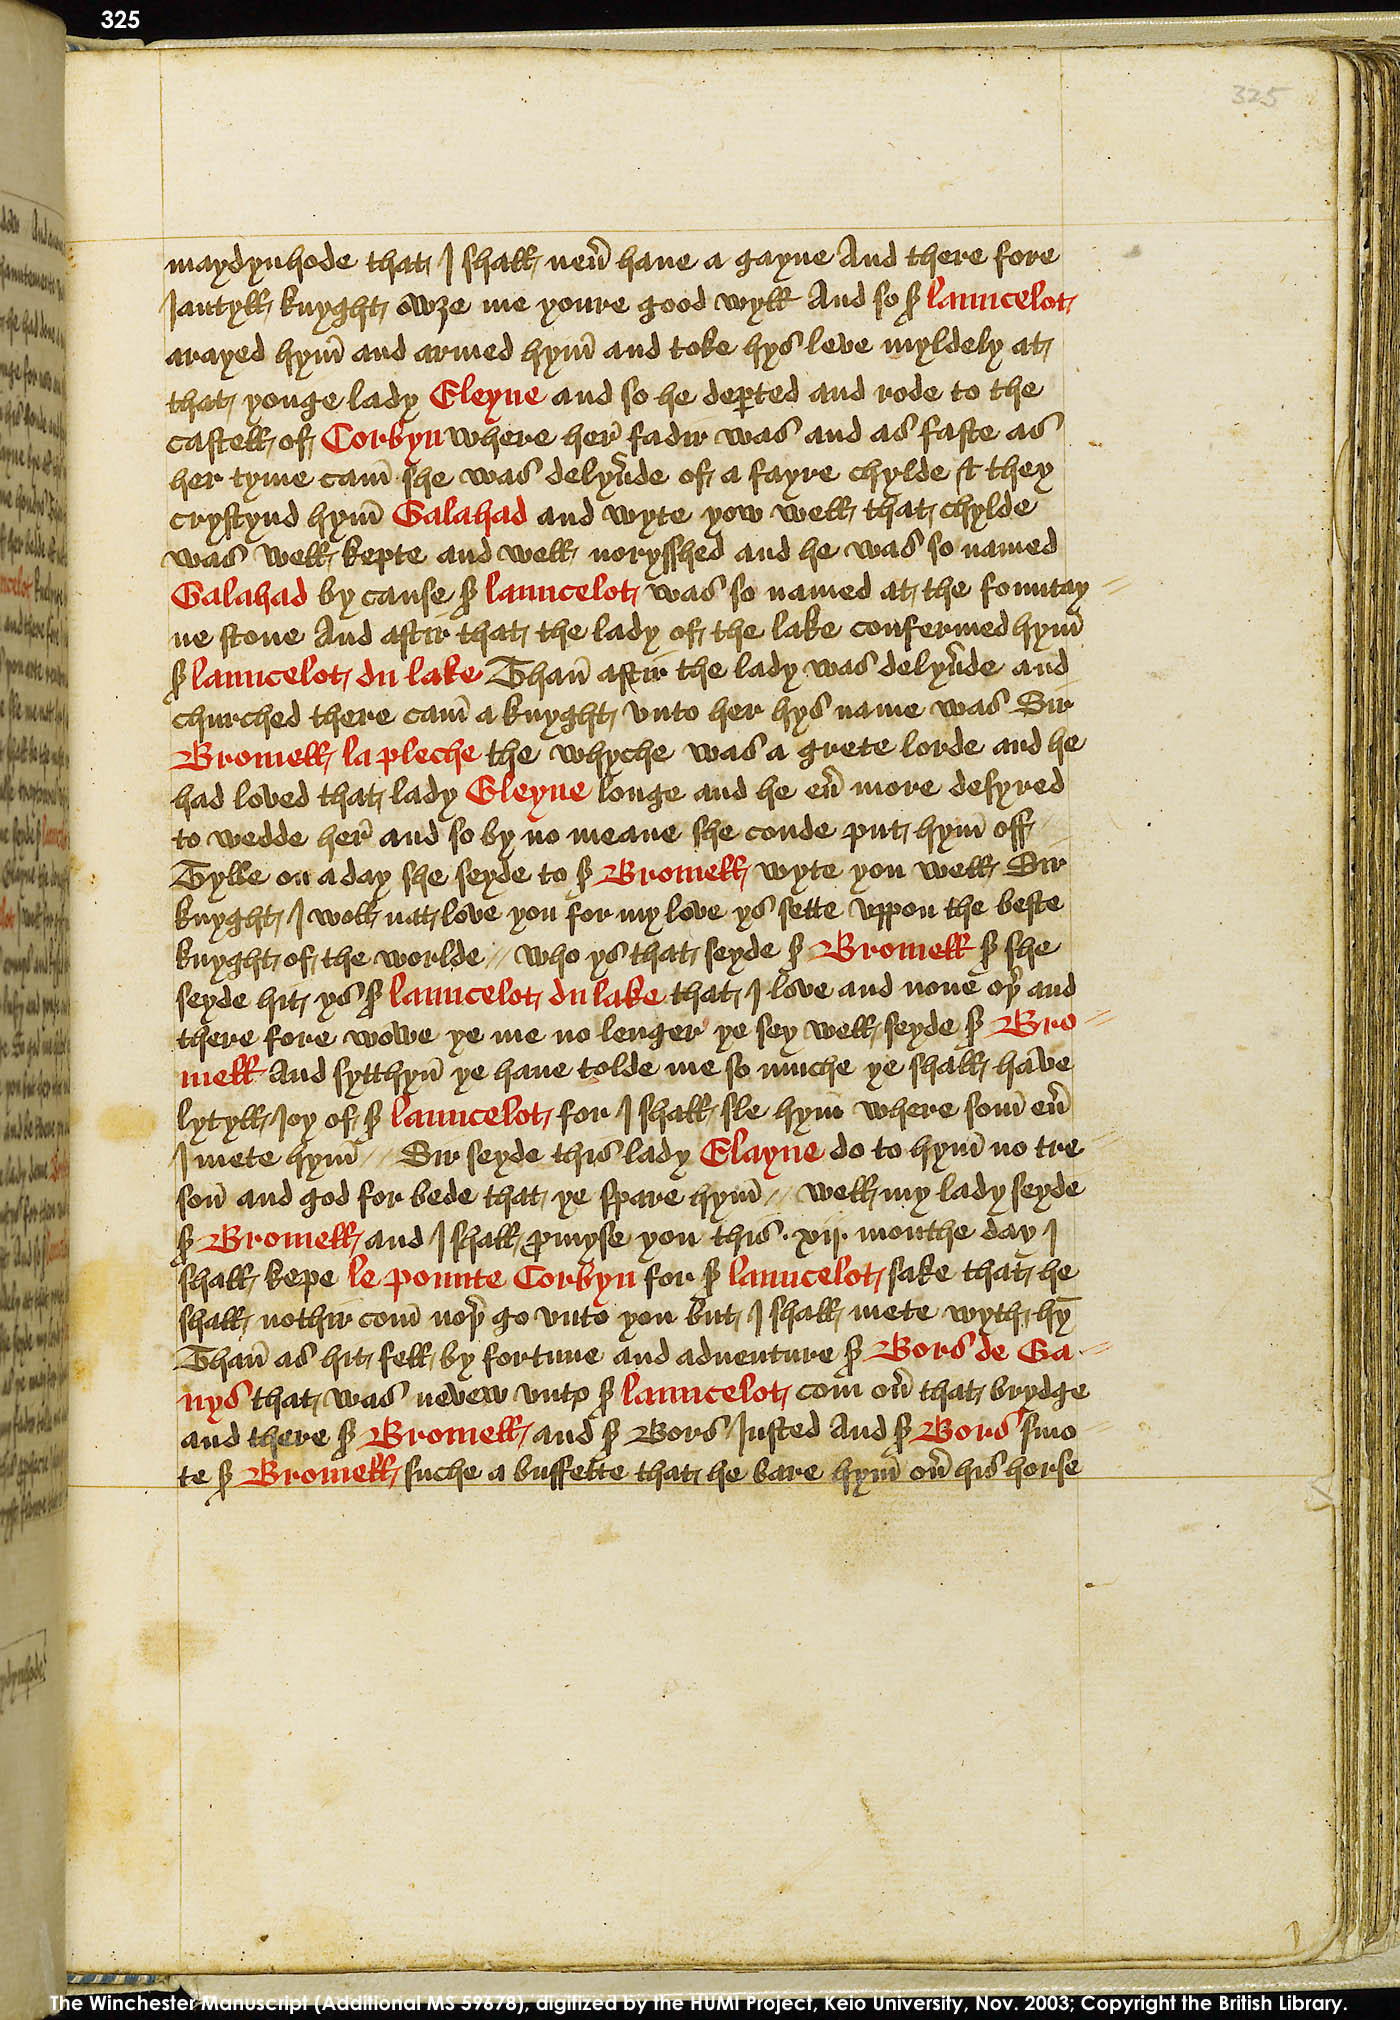 325
325
maydynhode that I shall neũ haue a gayne And there fore
Jantyll knyght owȝe me youre good wyll And so ẜ launcelot
arayed hym̄ and armed hym̄ and toke hys leve myldely at
that yonge lady Eleyne and so he deꝑted and rode to the
castell of Corbyn where her̄ fadir was and as faste as
her tyme cam̄ she was delyũde of a fayre chylde & they
crystynd hym̄ Galahad and wyte yow well that chylde
was well kepte and well noryshed and he was so named
Galahad by cause ẜ launcelot was so named at the fountay
ne stone And aftir that the lady of the lake confermed hym̄
ẜ launcelot du lake Than̄ aftir the lady was delyũde and
churched there cam̄ a knyght vnto her hys name was Sir
Bromell la pleche the whyche was a grete lorde and he
had loved that lady Eleyne longe and he eũ more desyred
to wedde her̄ and so by no meane she coude put hym̄ off
Tylle on a day she seyde to ẜ Bromell wyte you well Sir
knyght I woll nat love you for my love ys sette vppon the beste
knyght of the worlde // who ys that seyde ẜ Bromell ẜ she
seyde hit ys ẜ launcelot du lake that I love and none oþ̄ and
there fore wowe ye me no lenger ye sey well seyde ẜ Bro
mell And sytthyn̄ ye haue tolde me so muche ye shall have
lytyll Joy of ẜ launcelot for I shall sle hym where som̄ eũ
I mete hym̄ // Sir seyde this lady Elayne do to hym̄ no tre
son̄ and god for bede that ye spare hym̄ // well my lady seyde
ẜ Bromell and I shall ꝓmyse you this · xij · monthe day I
shall kepe le pounte Corbyn for ẜ launcelot sake that he
shall nothir com̄ noþ̄ go vnto you but I shall mete wyth hȳ
Than̄ as hit fell by fortune and aduenture ẜ Bors de Ga
nys that was nevew vnto ẜ launcelot com oũ that brydge
and there ẜ Bromell and ẜ Bors Justed And ẜ Bors smo
te ẜ Bromell suche a buffette that he bare hym̄ oũ his horse
The Winchester Manuscript (Additional MS 59678), digitized by the HUMI Project, Keio University, Nov. 2003; Copyright the British Library.